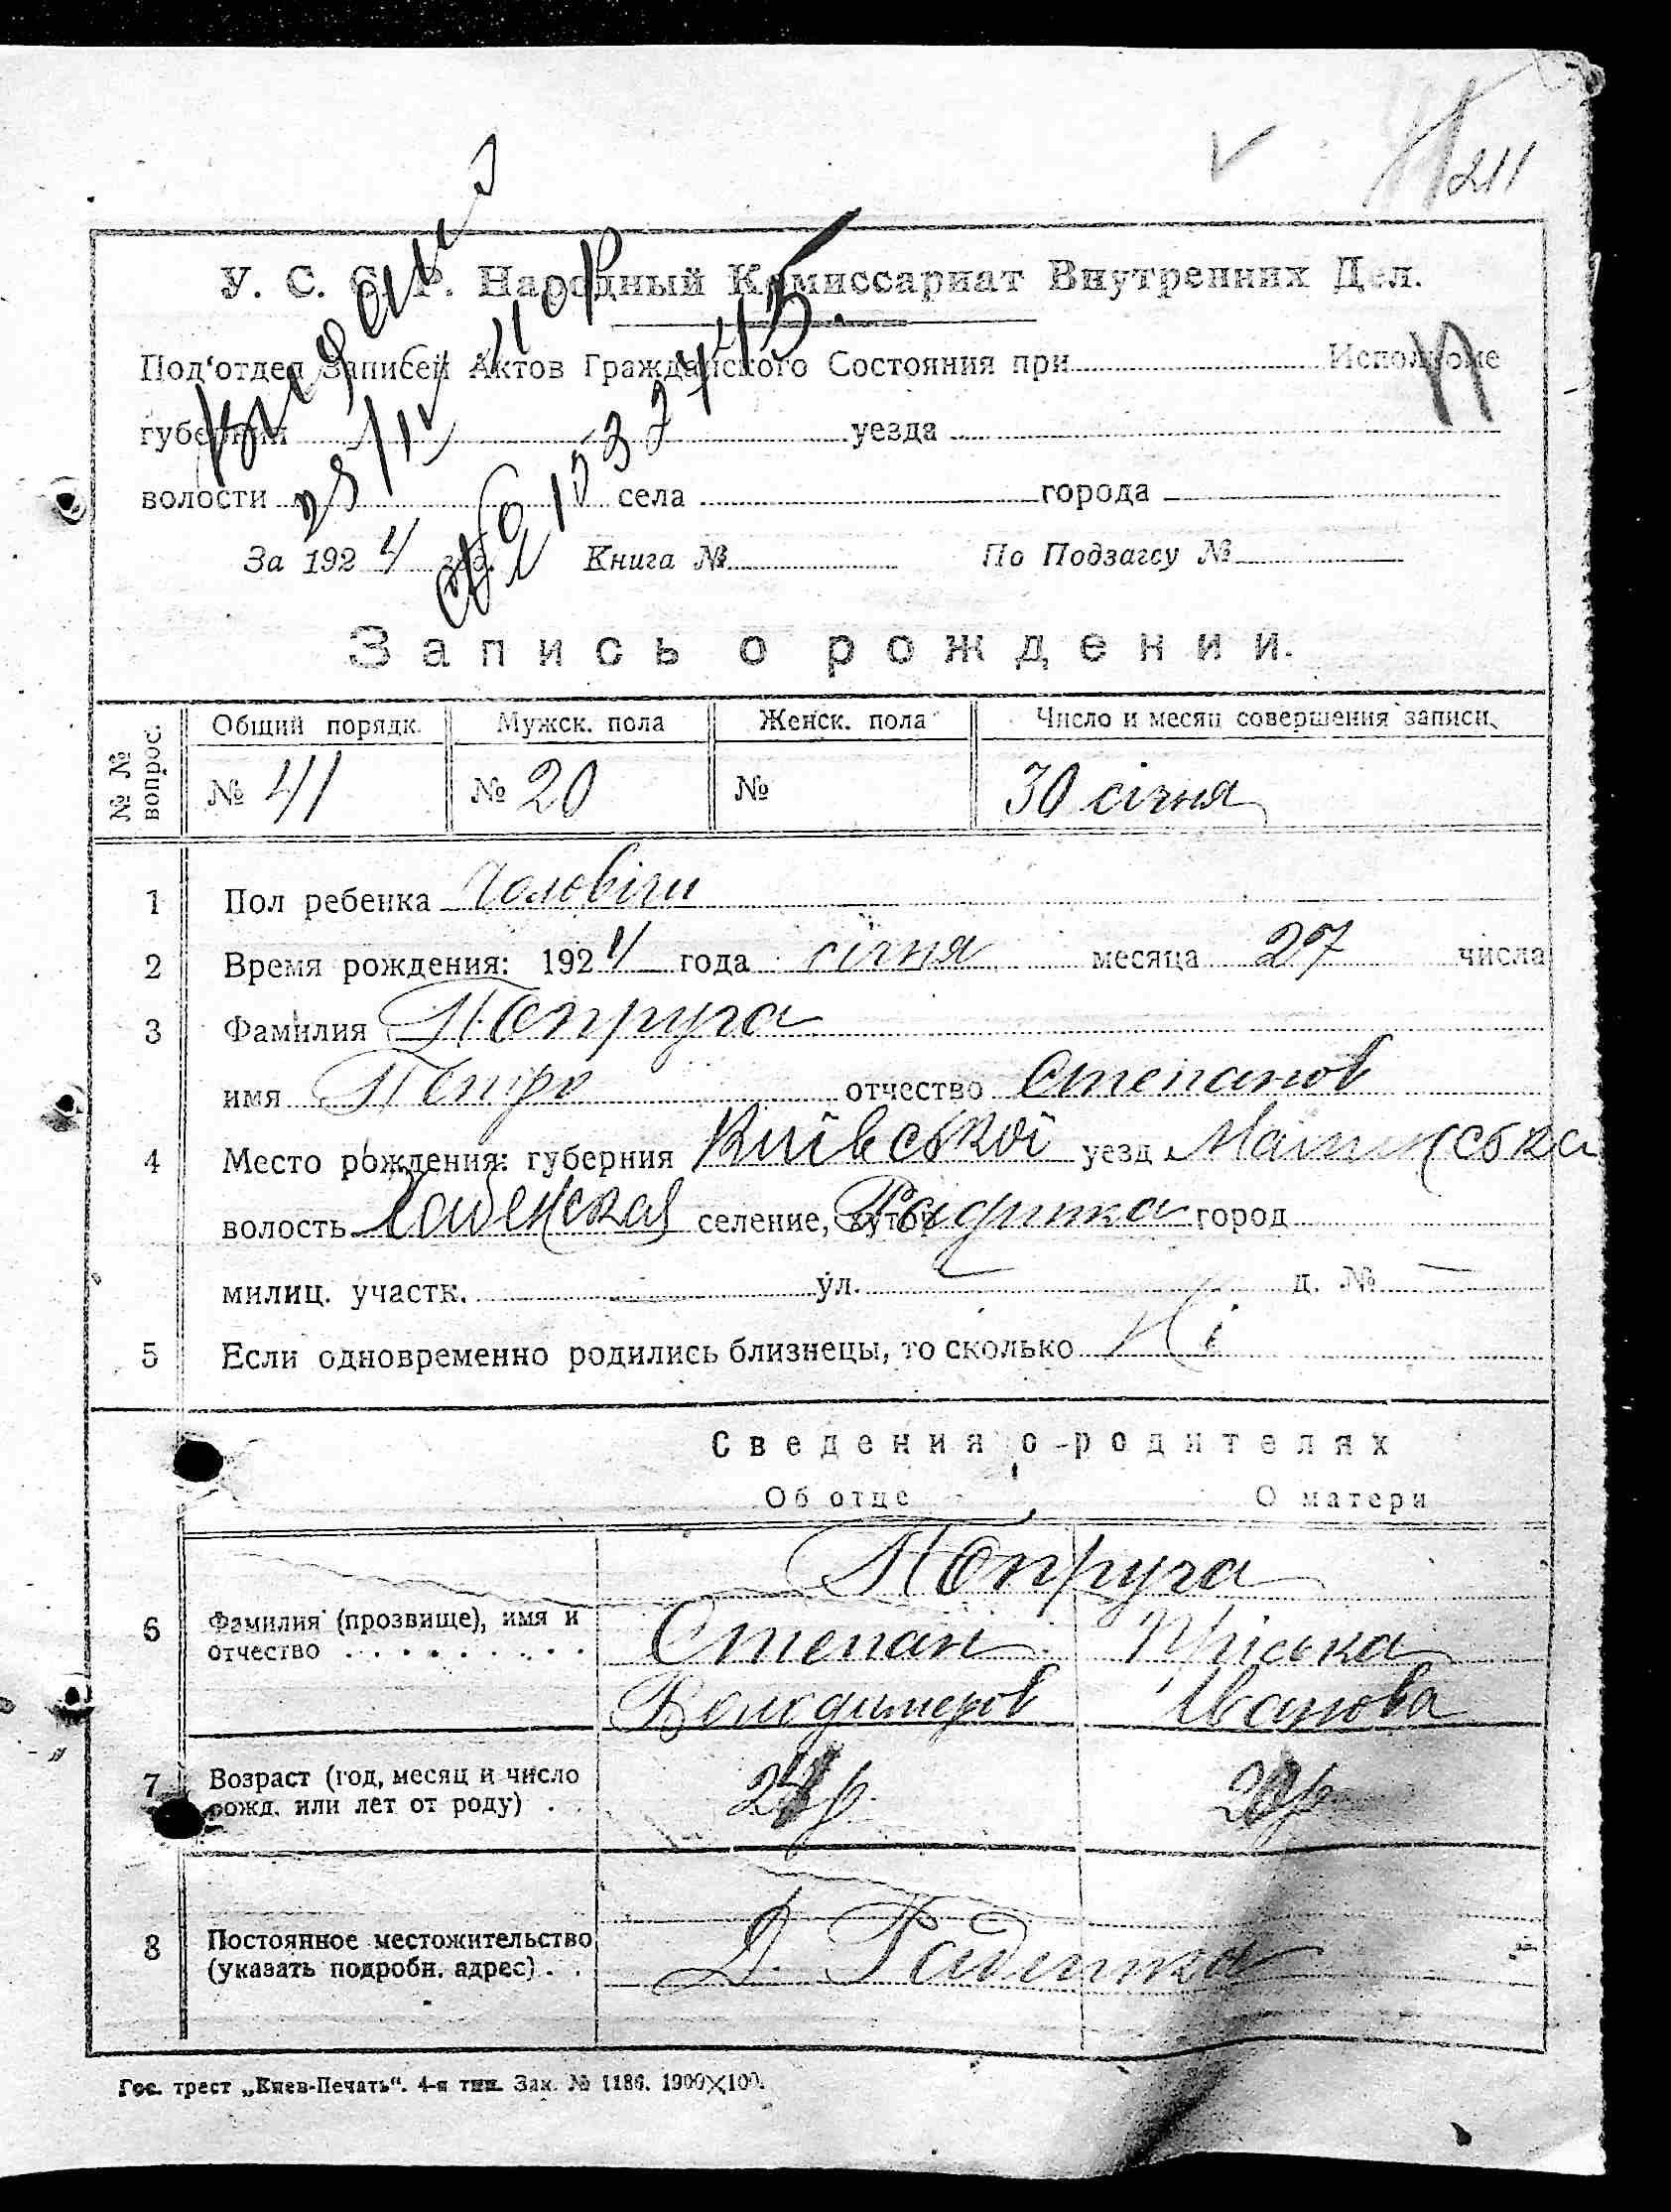 211
У. С. С. Р. Народный Комиссариат Внутренних Дел.
Под‘отдел Записей Актов Гражданского Состояния при Исполкоме
губернии уезда
волости села города
За 1924 год. Книга № По Подзагсу №
Запись о рождении.
№ № вопрос. Общий порядк. Мужск. пола Женск. пола Число и месяц совершения записи.
№ 41 № 20 № 30 січня
1 Пол ребенка Чоловічи
2 Время рождения: 1924 года січня месяца 27 числа
3 Фамилия Попруга
имя Петро отчество Степанов
4 Место рождения: губерния Київської уезд
волость Хабенская селение, хутор Радинка город
милиц. участк. ул. — д. № —
5 Если одновременно родились близнецы, то сколько Ні
Сведения о родителях
Об отце О матери
Попруга
6 Фамилия (прозвище), имя и отчество Степан Пріська
Володимеров Іванова
7 Возраст (год, месяц и число рожд. или лет от роду)
8 Постоянное местожительство (указать подробн. адрес) Д. Радинка
Гос. трест „Киев-Печать“. 4-я тип. Зак. № 1186. 1900×100.